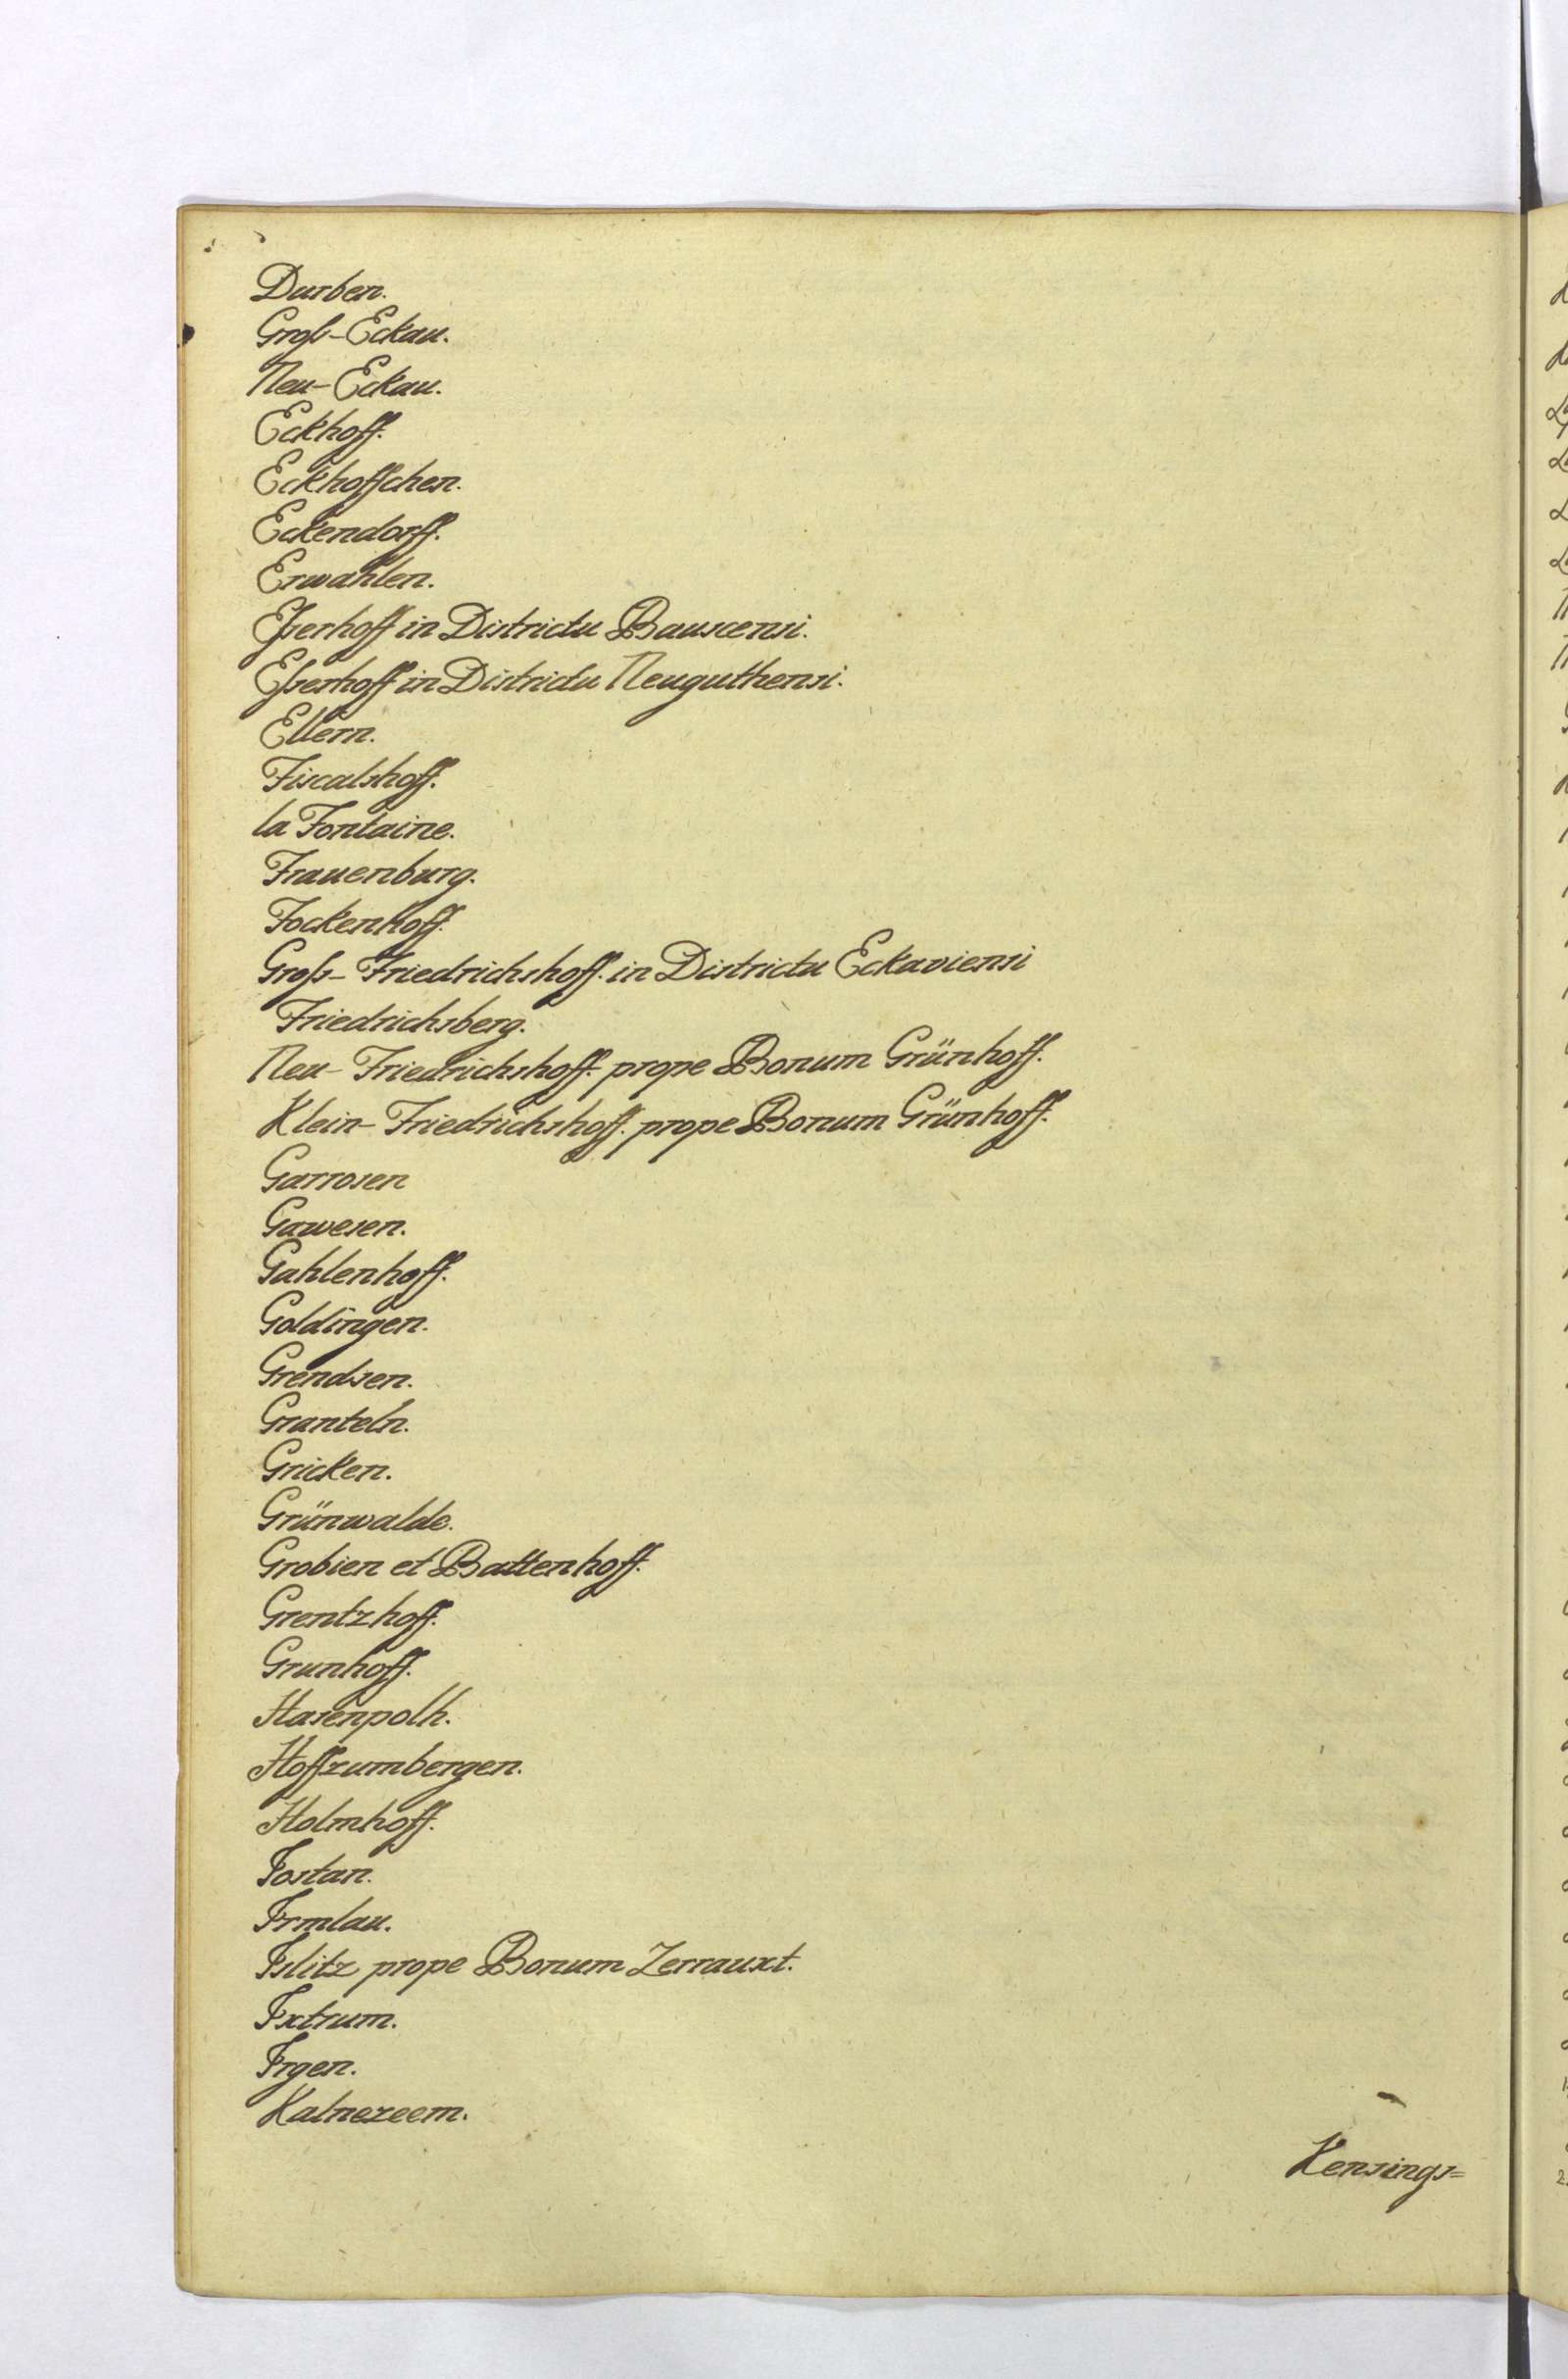 Durben.
Groß-Eckau.
Neu-Eckau.
Eckhoff.
Eckhoffchen.
Eckendorff.
Erwahlen.
Eßerhoff in Districtu Bauscensi.
Eßerhoff in Districtu Neuguthensi.
Ellern.
Fiscalshoff.
la Fontaine.
Frauenburg.
Fockenhoff.
Groß-Friedrichshoff. in Districtu Eckaviensi
Friedrichsberg.
Neu-Friedrichshoff. prope Bonum Grünhoff.
Klein-Friedrichshoff. prope Bonum Grünhoff.
Garrosen
Gawesen.
Gahlenhoff.
Goldingen.
Grendsen.
Granteln.
Gricken.
Grünwalde.
Grobien et Battenhoff.
Grentzhoff.
Grunhoff.
Hasenpoth.
Hoffzumbergen.
Holmhoff.
Jostan.
Irmlau.
Islitz prope Bonum Zerrauxt.
Ixtrum.
Irgen.
Kalnezeem.
Kensings=